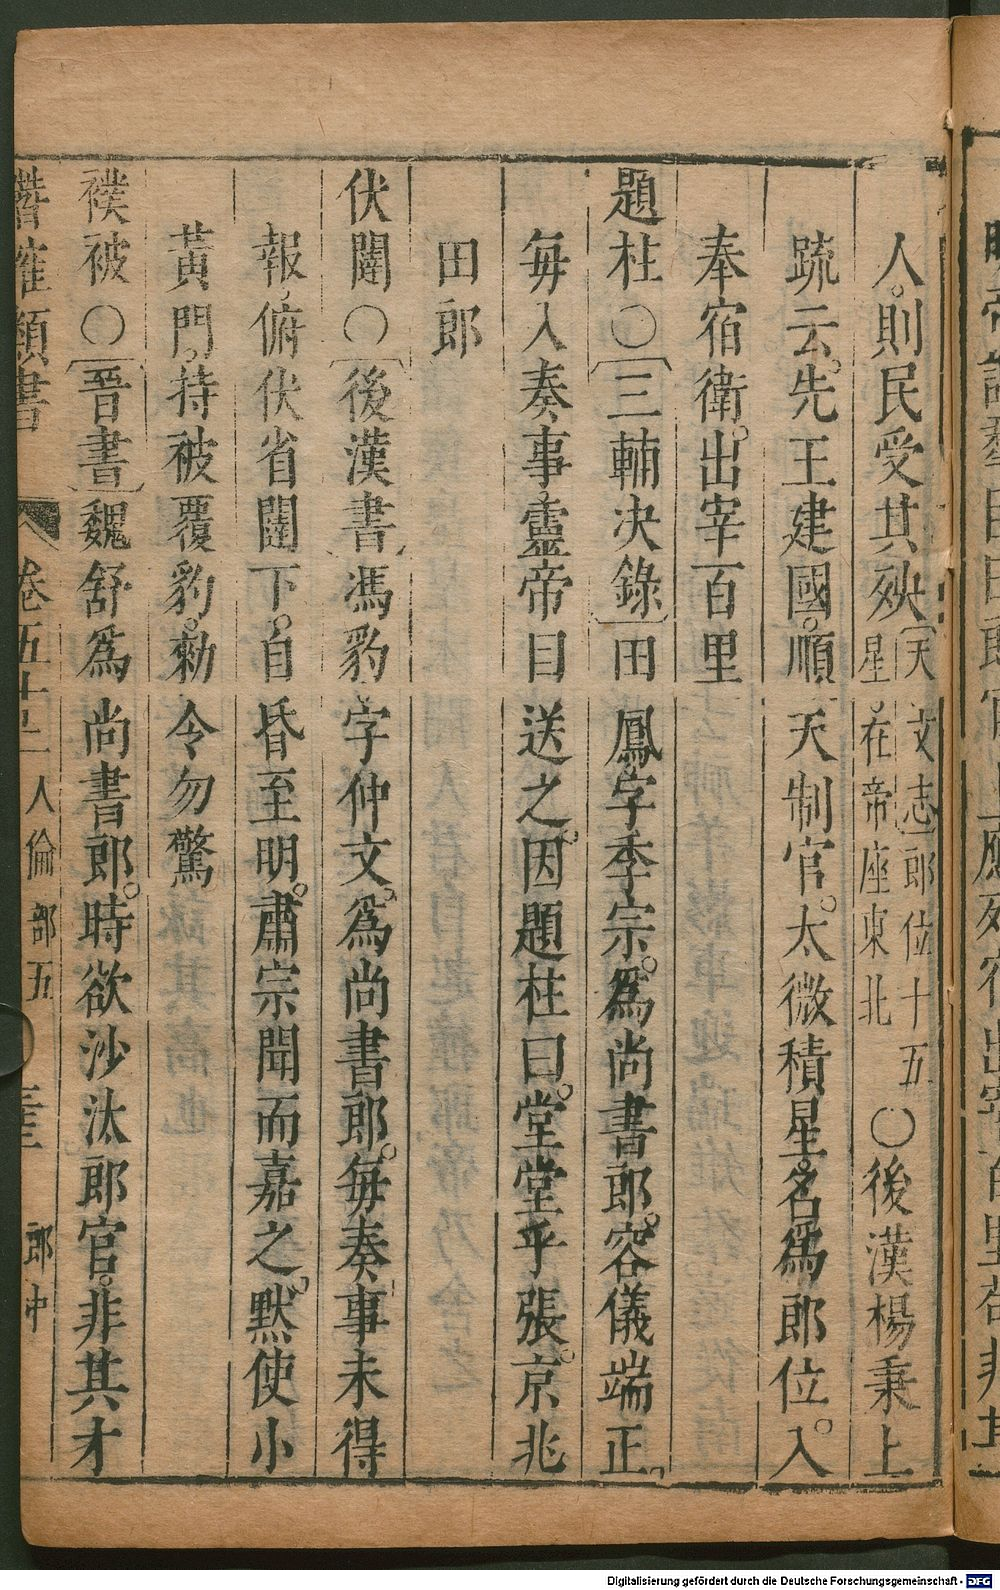 人則民受其殃〔天文志〕郎位十五星在帝座東北〇後漢楊秉上
疏云先王建國順天制官太微積星名爲郎位入
奉宿衛出宰百里
題柱〇〔三輔决錄〕田鳳字季宗爲尚書郎容儀端正
每入奏事靈帝目送之因題柱曰堂堂乎張京兆
田郎
伏闥〇〔後漢書〕馮豹字仲文爲尚書郎每奏事未得
報俯伏省闥下自昏至明肅宗聞而嘉之默使小
黃門持被覆豹勑令勿驚
襆被〇〔晉書〕魏舒爲尚書郎時欲沙汰郎官非其才
潛確類書 卷五十二 人倫部五 郎中
Digitalisierung gefördert durch die Deutsche Forschungsgemeinschaft - DFG